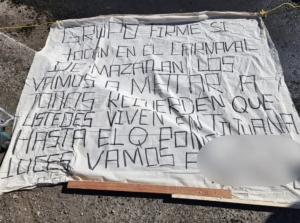 GRUPO FIRME SI
TOCAN EN EL CARNAVAL
DE MAZATLAN LOS
VAMOS A MUTILAR A
TODOS RECUERDEN QUE
USTEDES VIVEN EN TIJUANA
HASTA EL
LES VAMOS